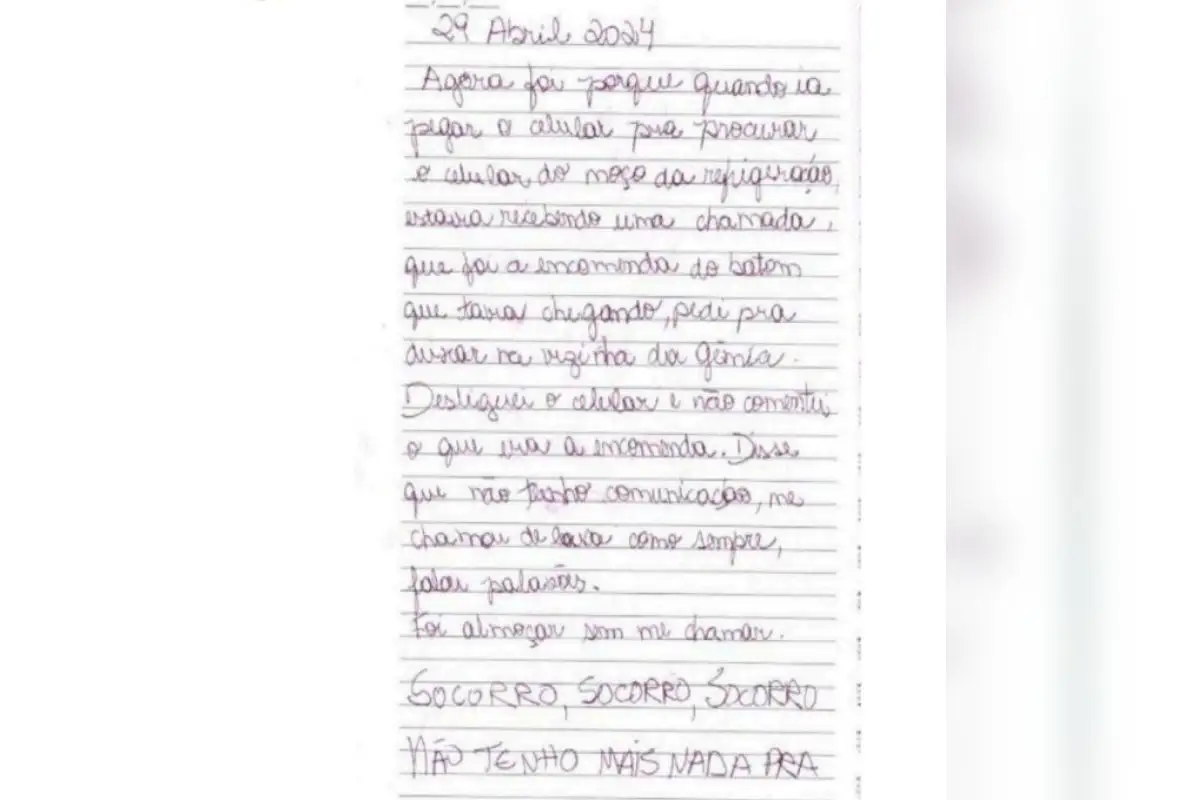 29 Abril 2024
Agora foi porque quando ia
pegar o celular pra procurar
o celular do moço da refrigeração,
estava recebendo uma chamada,
que foi a encomenda do batom
que tava chegando, pedi pra
deixar na vizinha da Gêmia.
Desliguei o celular e não comentei
o que era a encomenda. Disse
que não tenho comunicação, me
chamou de como sempre,
falou palavões.
Foi almoçar sem me chamar.
SOCORRO, SOCORRO, SOCORRO
NÃO TENHO MAIS NADA PRA